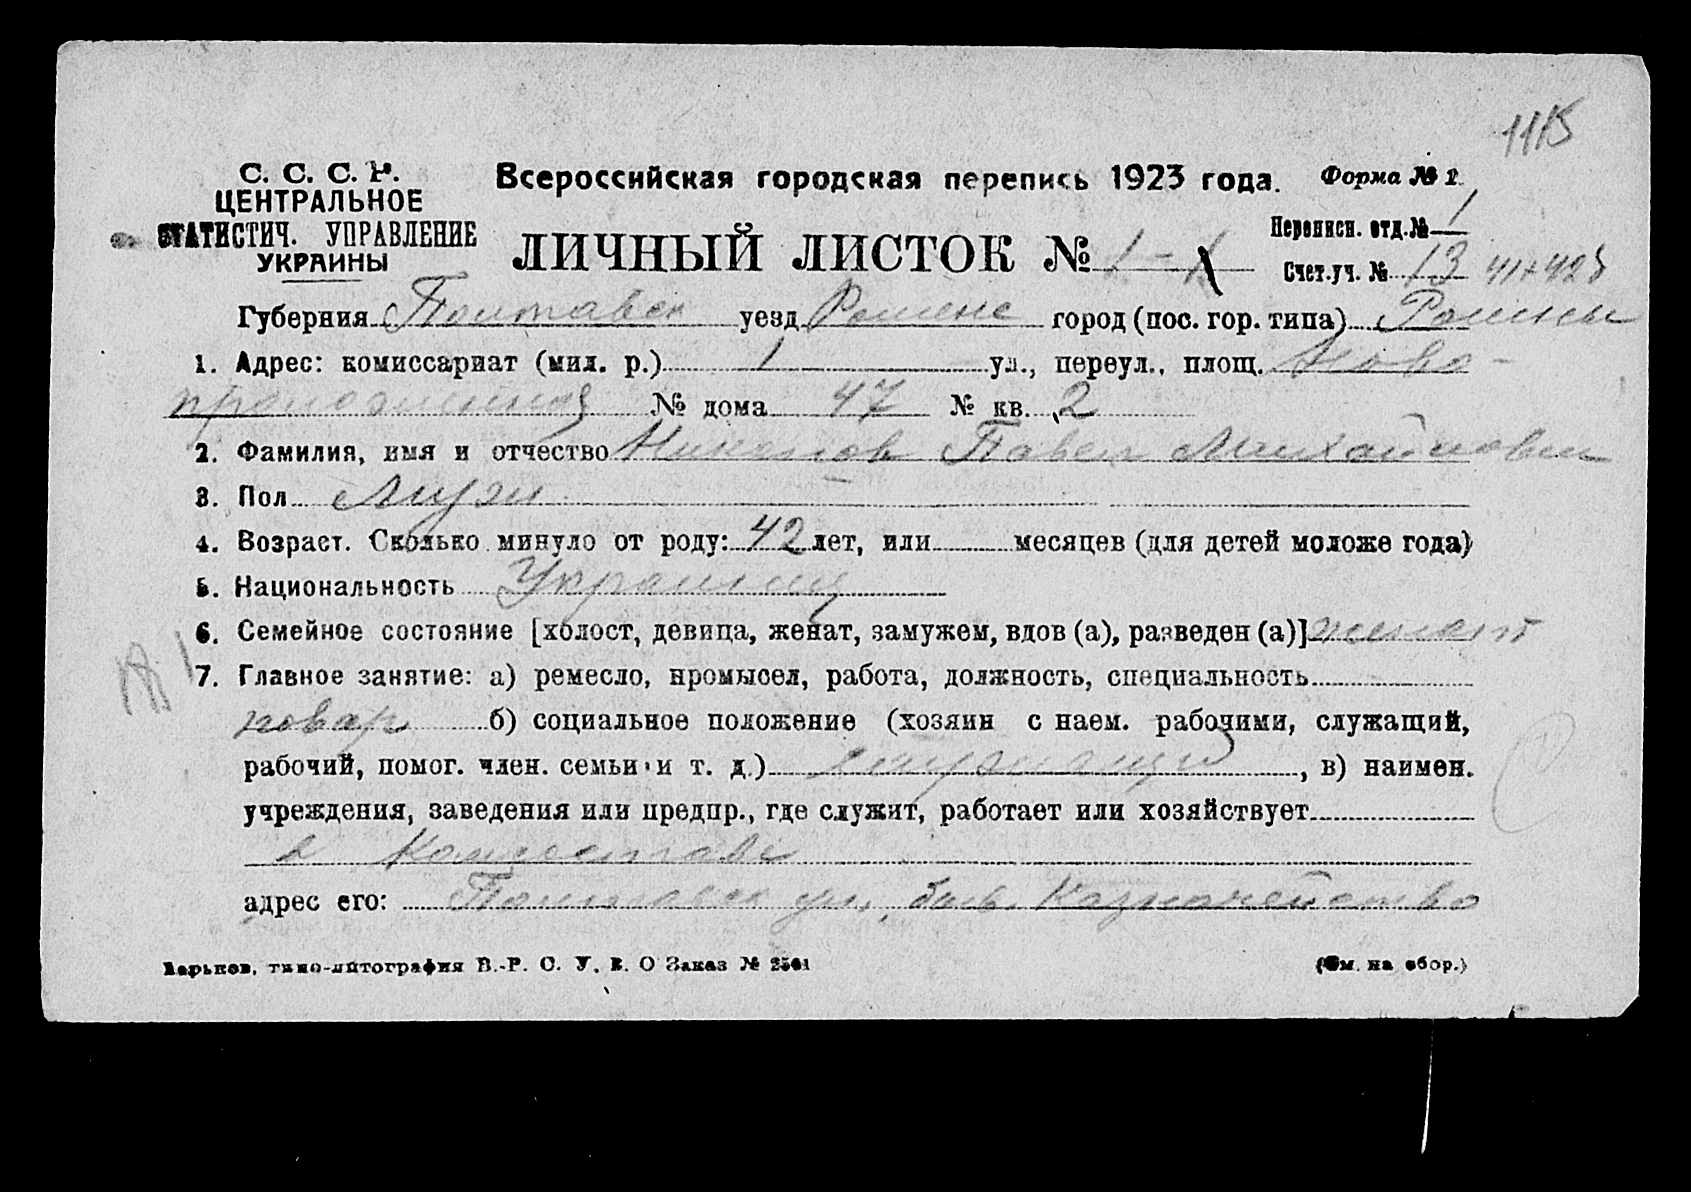 1115
С. С. С. Р. Всероссийская городская перепись 1923 года. Форма № 1.
ЦЕНТРАЛЬНОЕ
СТАТИСТИЧ. УПРАВЛЕНИЕ
УКРАИНЫ
Переписн. отд. № 1
ЛИЧНЫЙ ЛИСТОК № 1 - Счет. уч. № 13
Губерния Полтавск уезд Роменс город (пос. гор. типа) Ромны
1. Адрес: комиссариат (мил. р.) 1 ул., переул., площ. Ново-
№ дома 47 № кв. 2
2. Фамилия, имя и отчество Павел Михайлович
3. Пол Муж
4. Возраст. Сколько минуло от роду: 42 лет, или месяцев (для детей моложе года)
5. Национальность Украинец
6. Семейное состояние [холост, девица, женат, замужем, вдов (а), разведен (а)] женат
7. Главное занятие: а) ремесло, промысел, работа, должность, специальность
повар б) социальное положение (хозяин с наем. рабочими, служащий,
рабочий, помог. член. семьи и т. д.) служащий, в) наимен.
учреждения, заведения или предпр., где служит, работает или хозяйствует
в
адрес его: Полтавск ул., бывш. Казначейство
Харьков, типо-литография В.-Р. С. У. В. О Заказ № 2501 (См. на обор.)